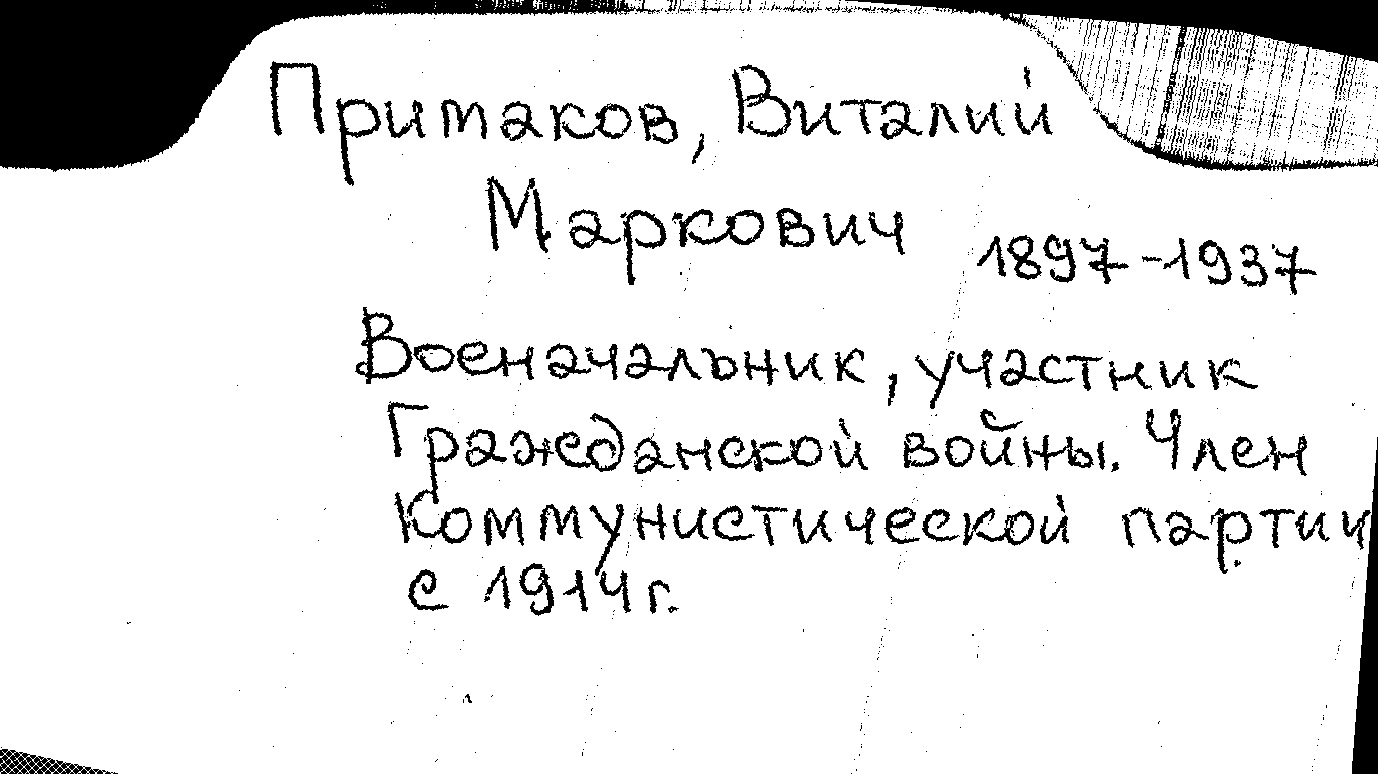 Примаков, Виталий
Маркович 1897-1937
Военачальник, участник
Гражданской войны. Член
Коммунистической партии
с 1914г.